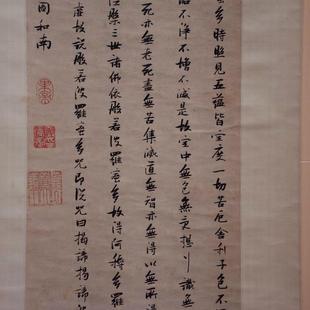 多時照見五蘊皆空度一切苦厄舍利子色不
垢不淨不增不減是故空中無色無受想行識無
死亦無老死盡無苦集滅道無智亦無得以無所得
槃三世諸佛依般若波羅蜜多故得阿耨多羅
虛故說般若波羅蜜多咒即說咒曰揭諦揭諦
和南